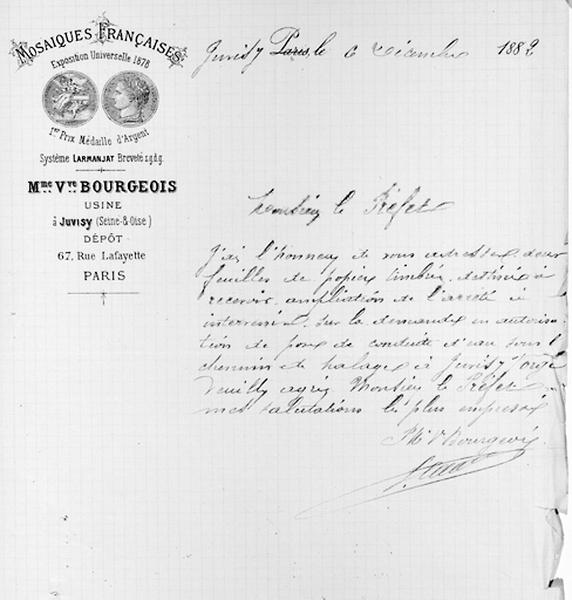 MOSAIQUES FRANÇAISES
Exposition Universelle 1878
1er Prix Médaille d'Argent
Système LARMANJAT Breveté s.g.d.g.
Mme Vve BOURGEOIS
USINE
à JUVISY (Seine-&-Oise)
DÉPÔT
67, Rue Lafayette
PARIS
Juvisy Paris, le 6 Décembre 1882
Monsieur le Préfet
J'ai l'honneur de vous adresser deux
feuilles de papier timbré destinées à
recevoir ampliation de l'arrêté à
intervenir sur la demande en autorisa
tion de pose de conduite d'eau sous l
chemin de halage à Juvisy s/ orge
Veuillez agréer Monsieur le Préfet
mes salutations les plus empressé
Bourgeois